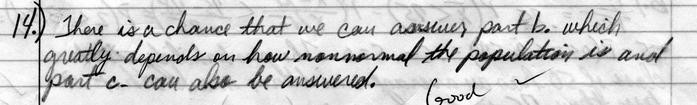 14.) There is a chance that we can answer part b. which
greatly depends on how nonnormal the population is and
part c. can also be answered.
Good